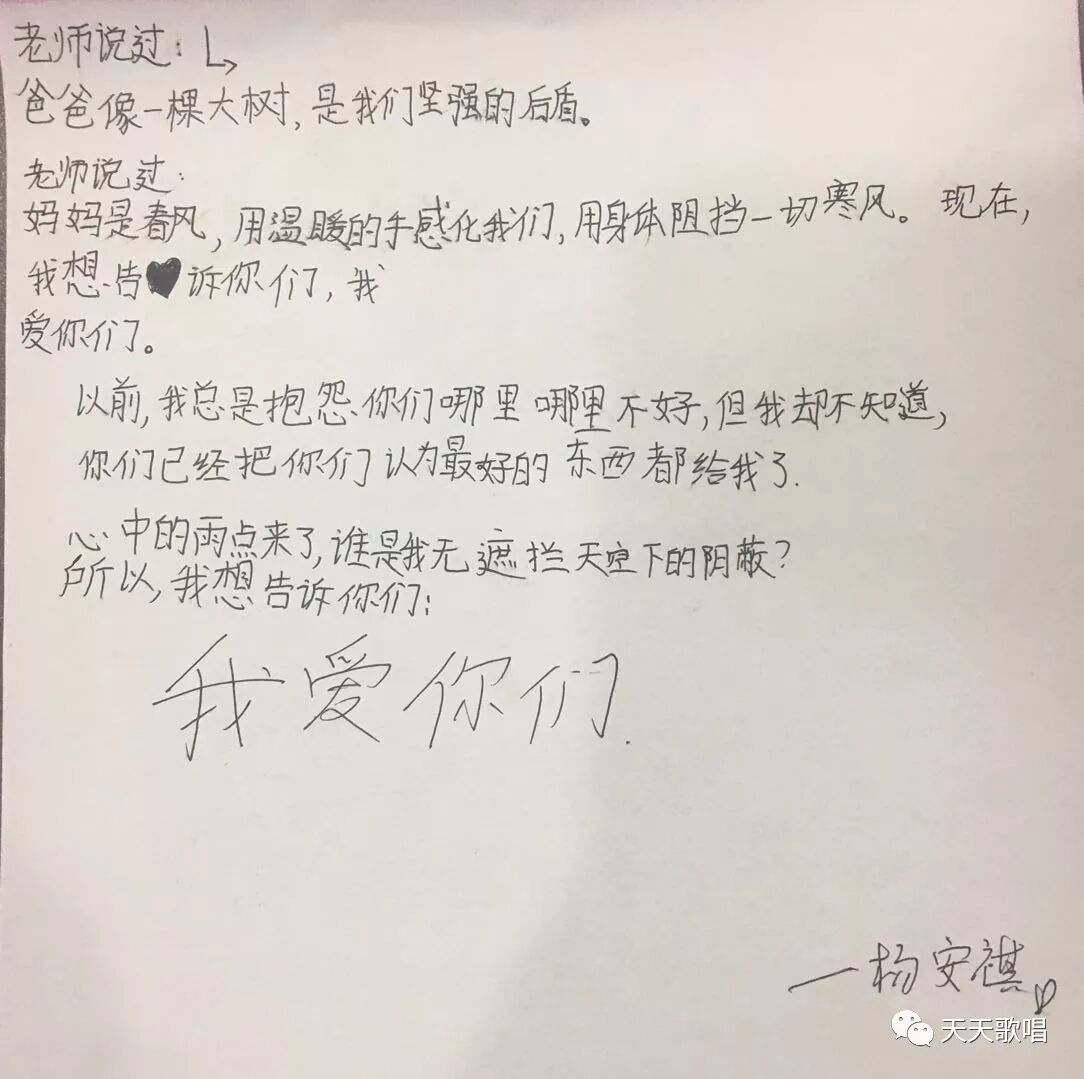 老师说过：
爸爸像一棵大树，是我们坚强的后盾。
老师说过：
妈妈是春风，用温暖的手感化我们，用身体阻挡一切寒风。现在，
我想告♥诉你们，我
爱你们。
以前，我总是抱怨你们哪里哪里不好，但我却不知道，
你们已经把你们认为最好的东西都给我了.
心中的雨点来了，谁是我无遮拦天空下的阴蔽？
所以，我想告诉你们：
我爱你们.
一杨安祺
天天歌唱